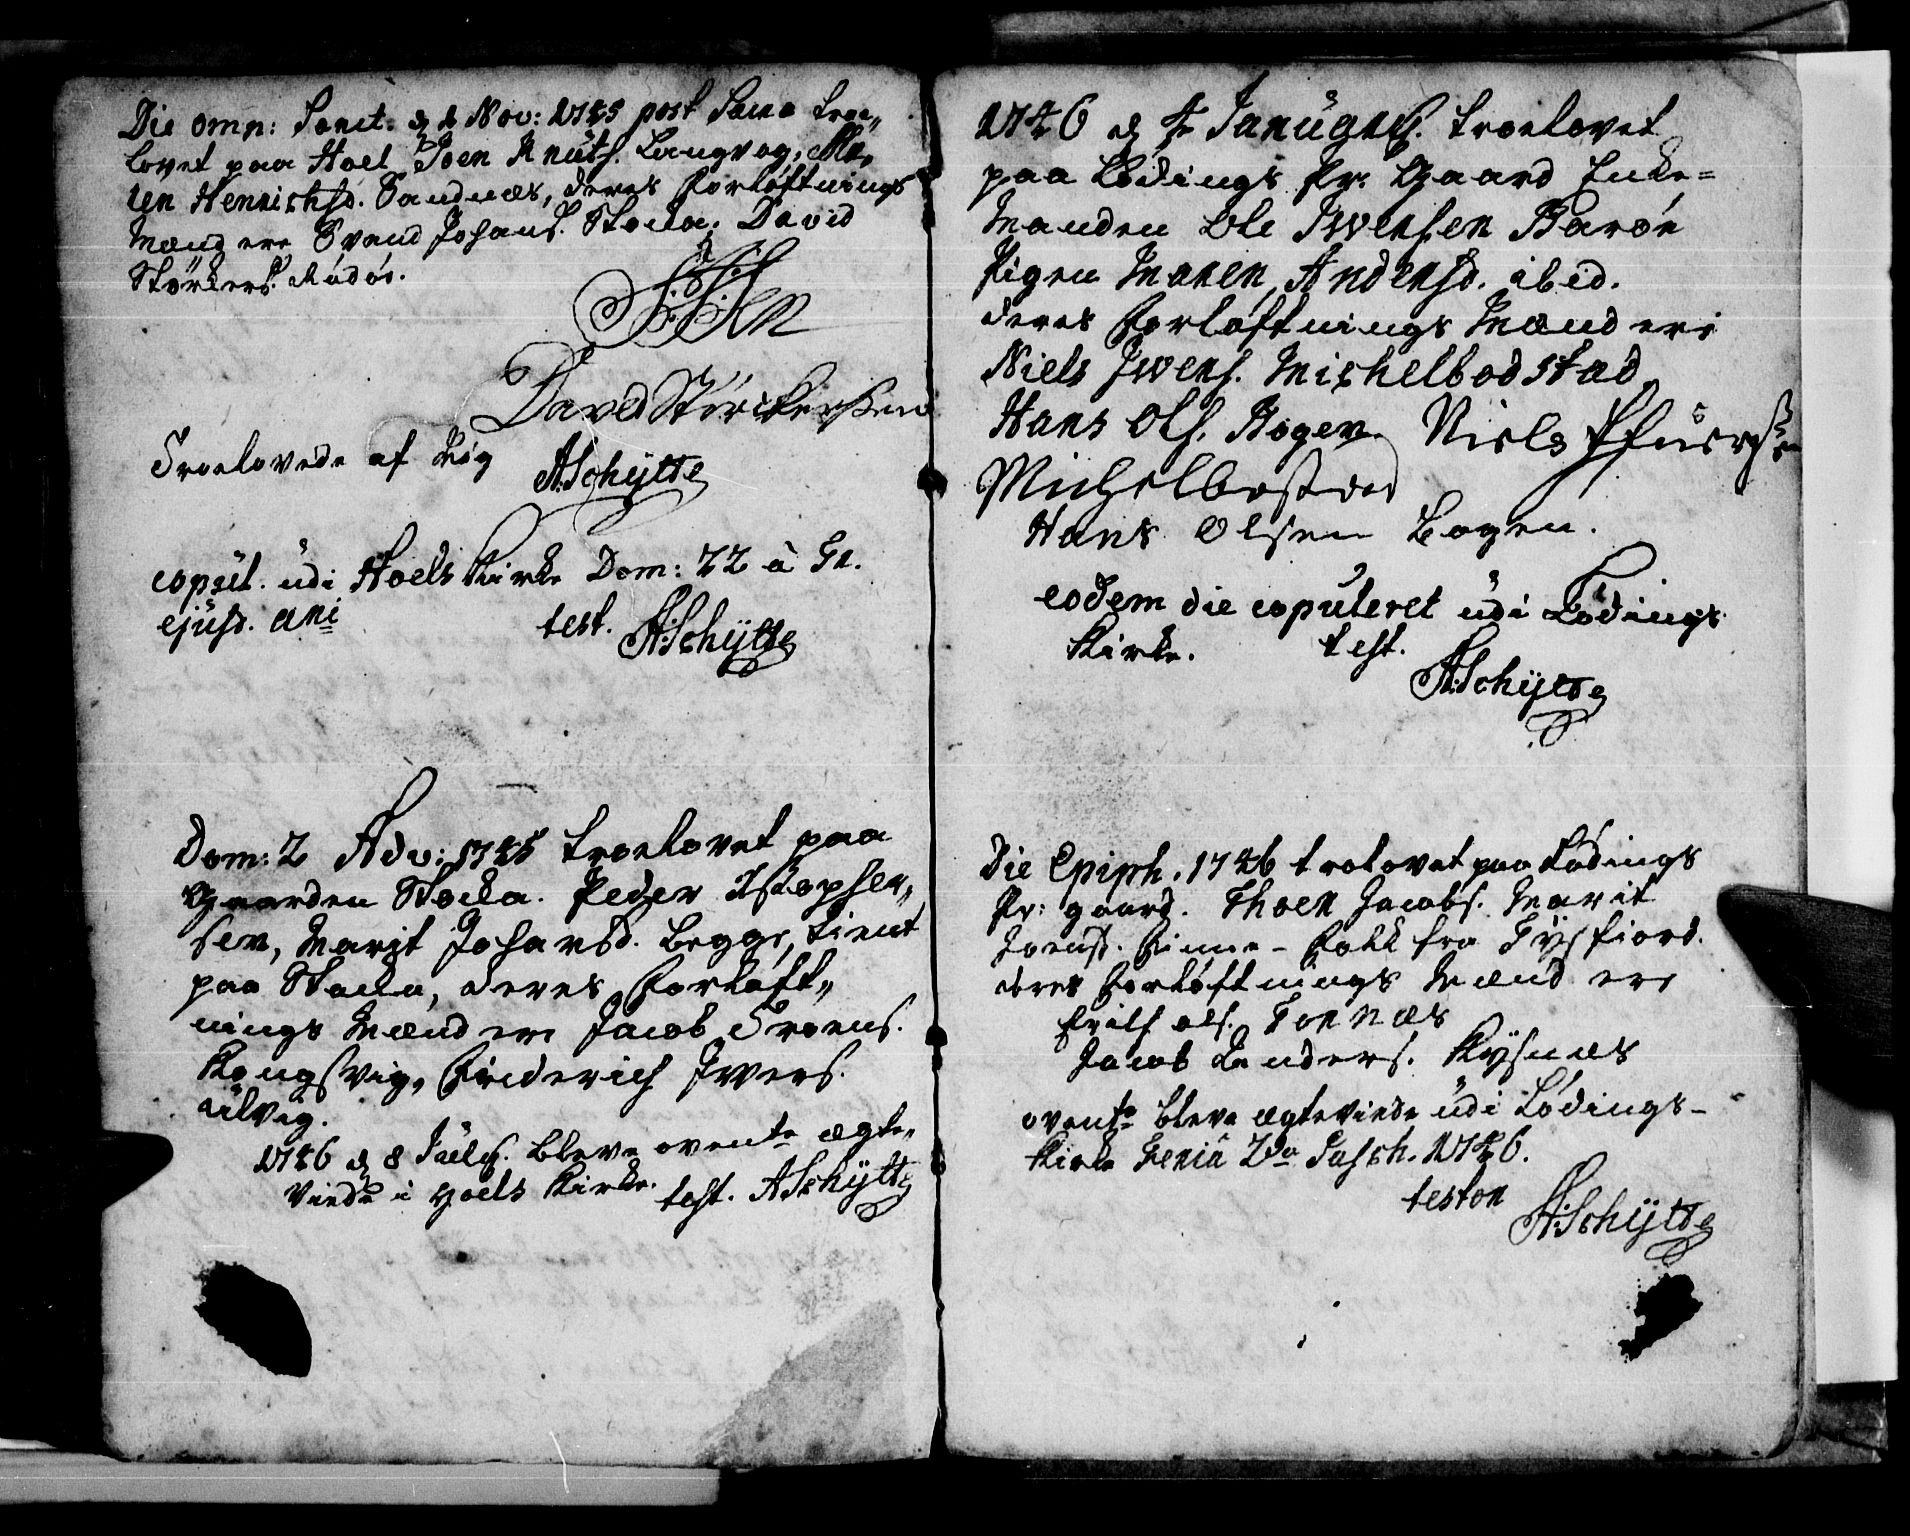 Die omn: Sanct. d. 1 Nov: 1745 post Sacra troe„
lovet paa Hoel Joen Knuts. Langvog, Ma„
ren Henrichsd. Sandnæs, deres Forløftnings
Mænd ere Svend Johans. Stocka. David
Störkers. Rödös.
David Störckersen
Troelovede af Mig ASchÿtte
copul. udi Hoels Kirke Dom: 22 à Tr.
ejusd. ani test. ASchÿtte
Dom: 2 Adv: 1745 troelovet paa
Gaarden Stocka. Peder Istopher„
sen, Marit Johansd. begge tient
paa Stocka, deres Forløft„
nings Mænd ere Jacob Troens.
Kongsvig, Friderich Ivers.
Ulvig.
1746 d. 8 Julij. bleve ovente ægte„
viede i Hoels Kirke. test. ASchÿtte
1746 d. 4 Januarij. troelovet
paa Lødings Pr. Gaard Enke-
Manden Ole Iwersen Barøe
Pigen Maren Andersd. ibid.
deres Forløftnings Mænd ere
Niels Iwers. Michelbodstad
Hans Ols. Bogen. Niels
Michelbostad
Hans Olsen Bogen.
eodem die copuleret udi Lødings
Kirke. test.
ASchÿtte
Die Epiph. 1746 trolovet paa Lødings
Pr: gaard. Thoer Jacobs. Marit
Joensd. Finne-Folk fra Tysfiord.
deres Forløftnings Mænd ere
Ols. Tornæs
Jacob Anders. Kysnæs
ovente bleve ægteviede udi Lødings-
Kirke Feria 2da Pasch. 1746.
teston
ASchÿtte